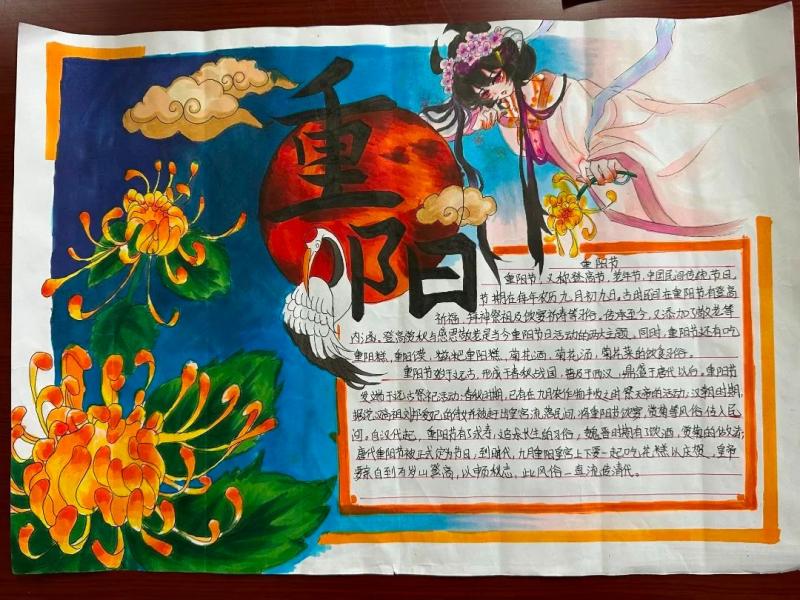 重阳
重阳节
重阳节，又称登高节、老年节，中国民间传统节日，
节期在每年农历九月初九，古时民间在重阳节有登高
祈福、拜神祭祖及饮宴祈寿等习俗。传承至今，又添加了敬老等
内涵，登高赏秋与感恩敬老是当今重阳节日活动的两大主题，同时，重阳节还有吃
重阳糕、重阳粿、糍粑重阳糕、菊花酒、菊花酒、菊花茶的饮食习俗。
重阳节始于远古，形成于春秋战国，普及于西汉，鼎盛于唐代以后。重阳节
发端于远古祭祀活动，春秋时期，已有在九月农作物丰收之时祭天帝的活动，汉朝时期，
据说汉高祖刘邦爱妃的侍女被赶出皇宫流落民间，将重阳节饮宴，赏菊等风俗传入民
间，自汉代起，重阳节有了求寿，追求长生的习俗，魏晋时期有了饮酒，赏菊的做法；
唐代重阳节被正式定为节日，到明代，九月重阳皇宫上下要一起吃花糕以庆贺，皇帝
要亲自到万岁山登高，以畅秋志，此风俗一直流传清代。